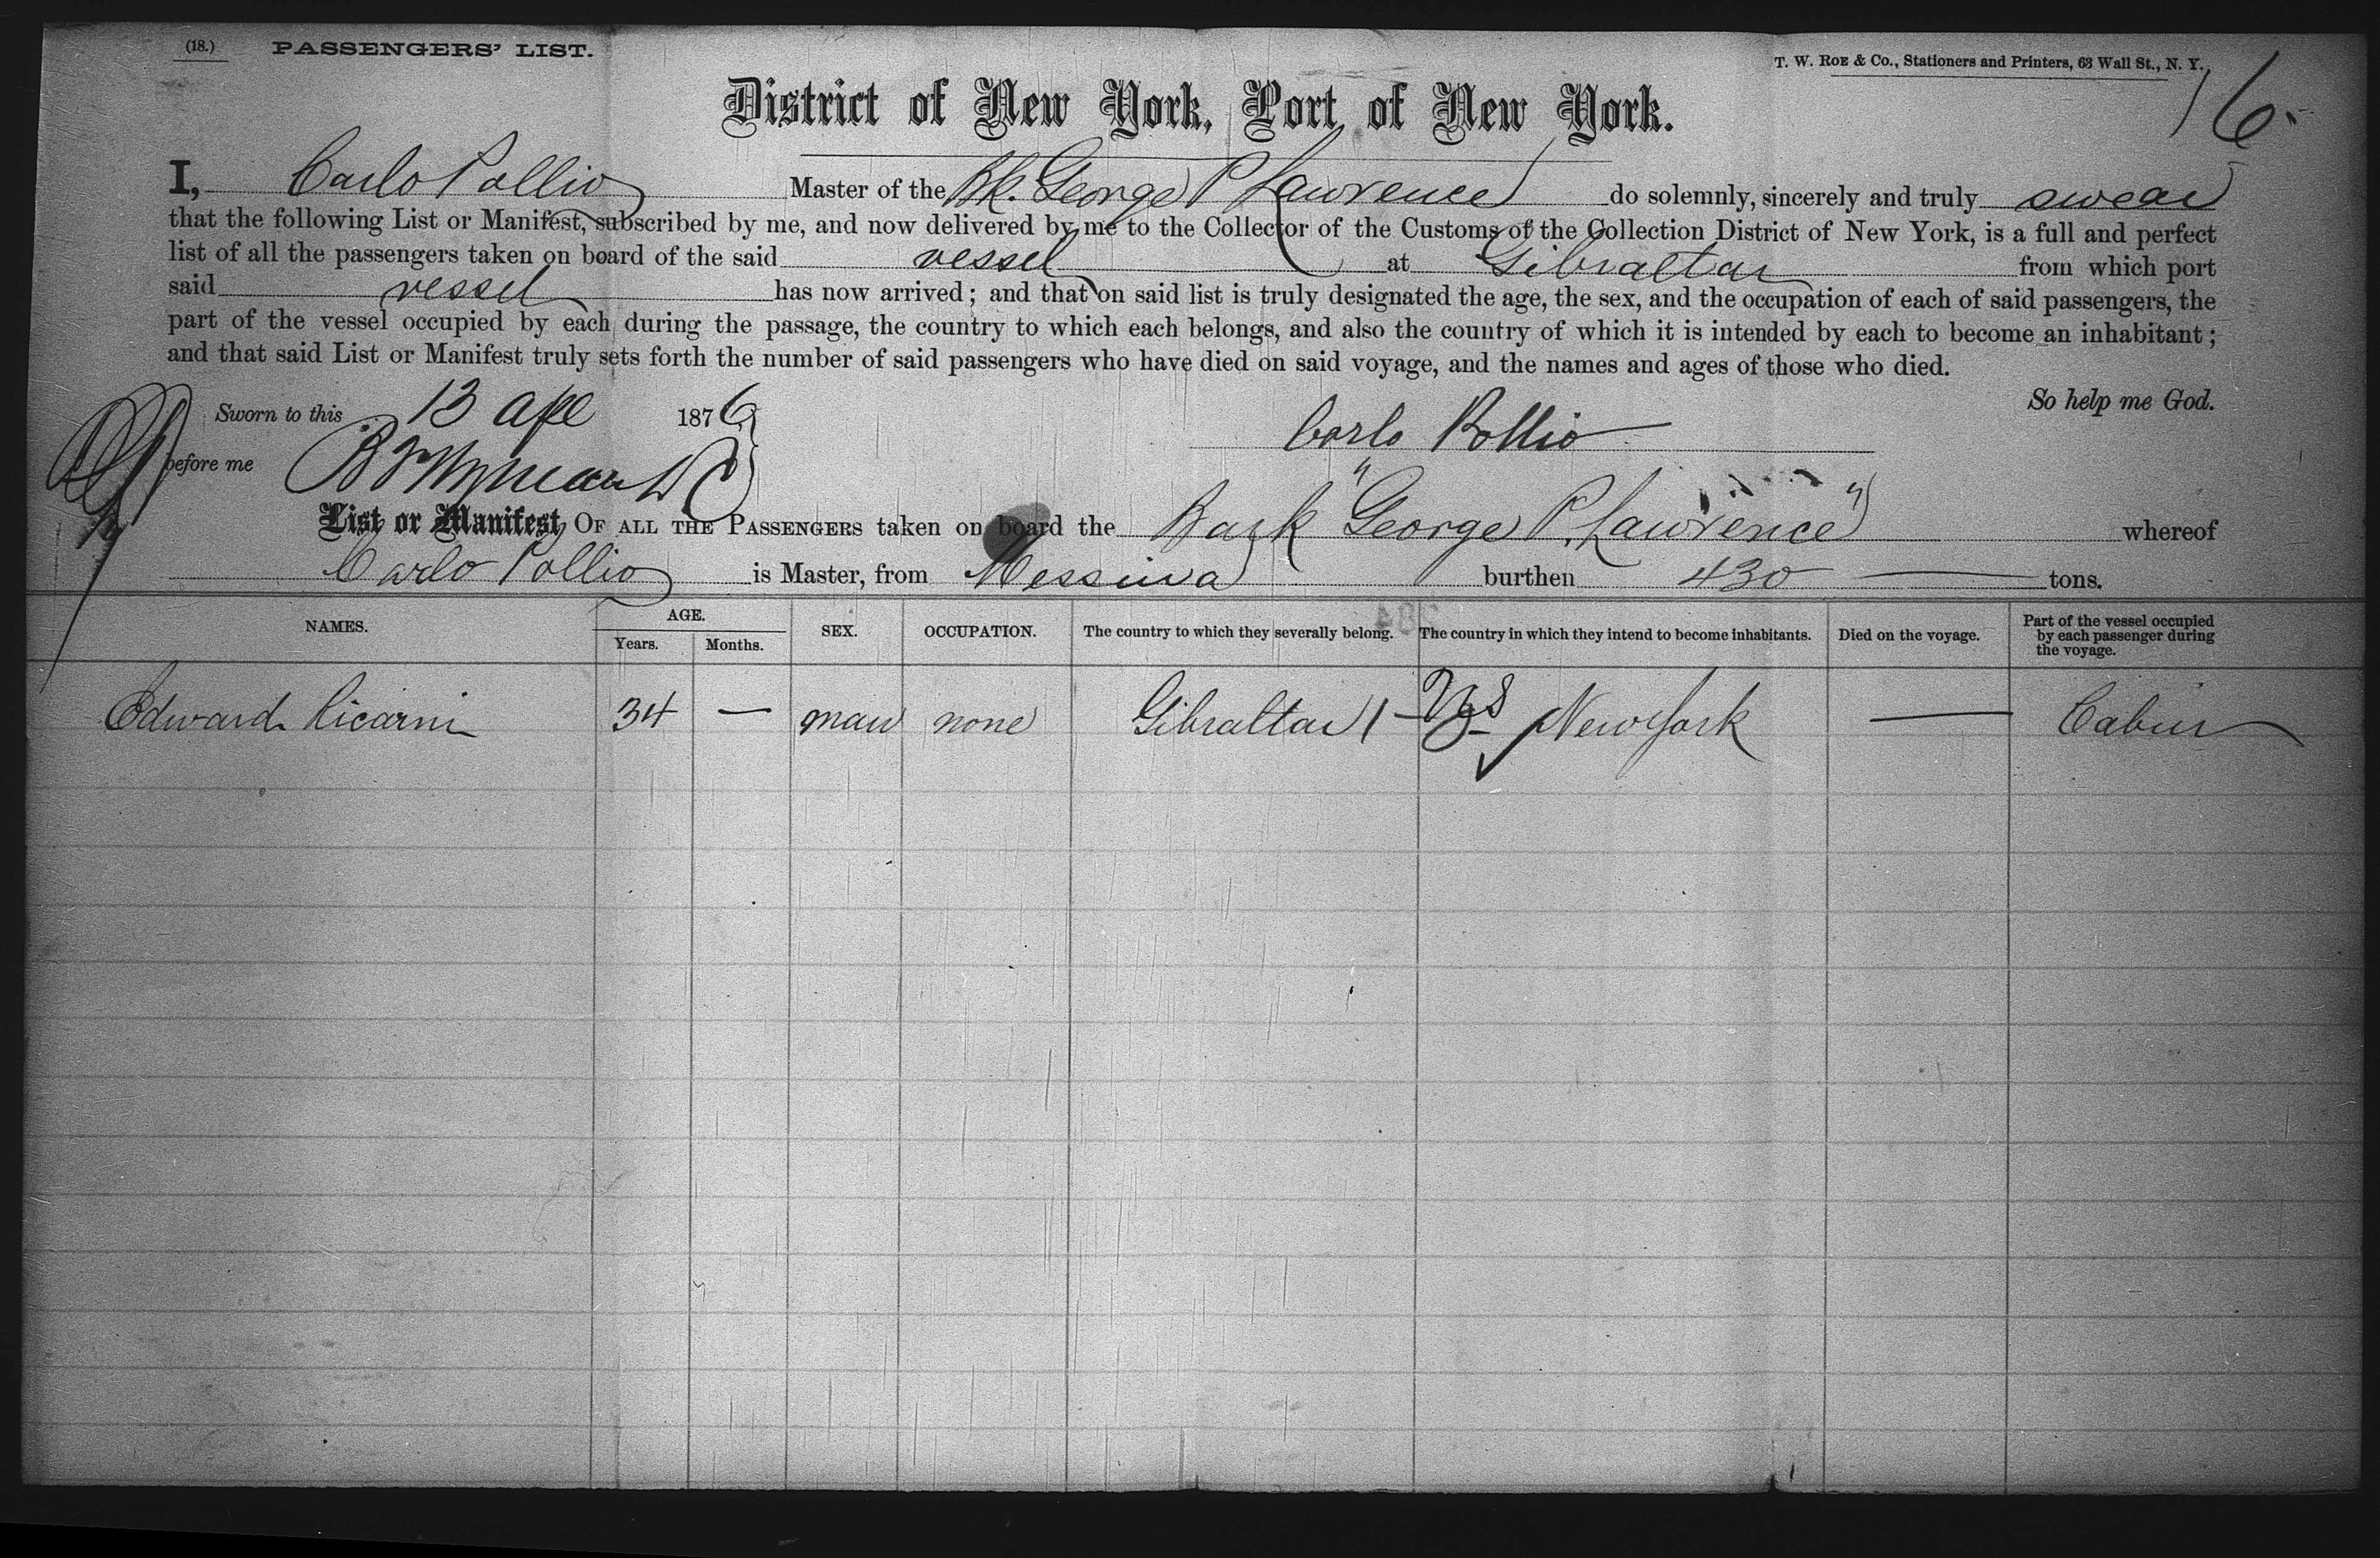 (18.) PASSENGERS' LIST.
T. W. ROE & Co., Stationers and Printers, 63 Wall St., N. Y.
16.
District of New York, Port of New York.
I, Carlo Pollio Master of the Bk. George P Lawrence do solemnly, sincerely and truly swear
that the following List or Manifest, subscribed by me, and now delivered by me to the Collector of the Customs of the Collection District of New York, is a full and perfect
list of all the passengers taken on board of the said vessel at Gibraltar from which port
said vessel has now arrived; and that on said list is truly designated the age, the sex, and the occupation of each of said passengers, the
part of the vessel occupied by each during the passage, the country to which each belongs, and also the country of which it is intended by each to become an inhabitant;
and that said List or Manifest truly sets forth the number of said passengers who have died on said voyage, and the names and ages of those who died.
So help me God.
Sworn to this 13 Apl 1876
Carlo Pollio
before me
List or Manifest OF ALL THE PASSENGERS taken on board the Bark "George P. Lawrence" whereof
Carlo Pollio is Master, from Messina burthen 430 tons.
NAMES. AGE. Years. Months. SEX. OCCUPATION. The country to which they severally belong. The country in which they intend to become inhabitants. Died on the voyage. Part of the vessel occupied by each passenger during the voyage.
Edward Ricarni 34 — man none Gibraltar 1 — US New York — Cabin